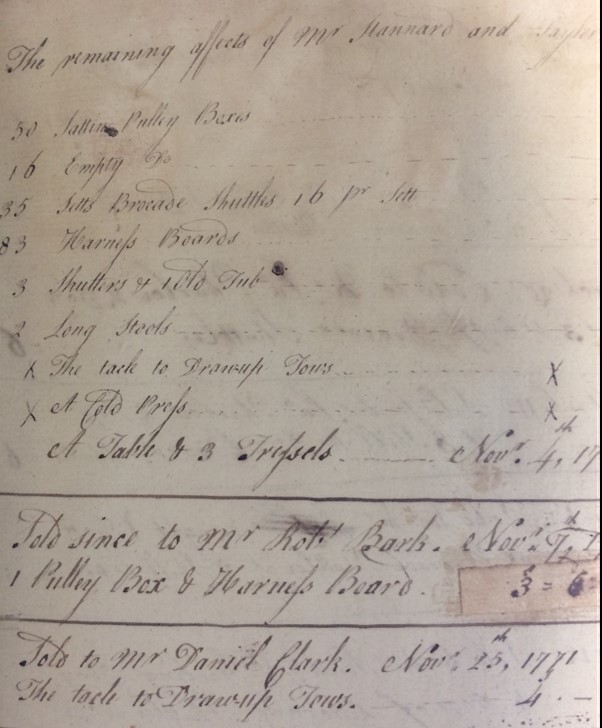 The remaining affects of Mr Stannard and Taylor
50 Sattin Pulley Boxes
16 Empty Do
35 Setts Brocade Shuttles 16 pr Sett
83 Harness Boards
3 Shutters & 1 Old Tub
2 Long Stools
X The tacle to Draw-up Tows X
X A Cold Press X
A Table & 3 Tressels Novr. 4th, 17
Sold since to Mr Robt Bark. Novr. 7th
1 Pulley Box & Harness Board. 3 = 6
Sold to Mr Daniel Clark. Novr. 25th, 1771
The tacle to Draw-up Tows. 4 -